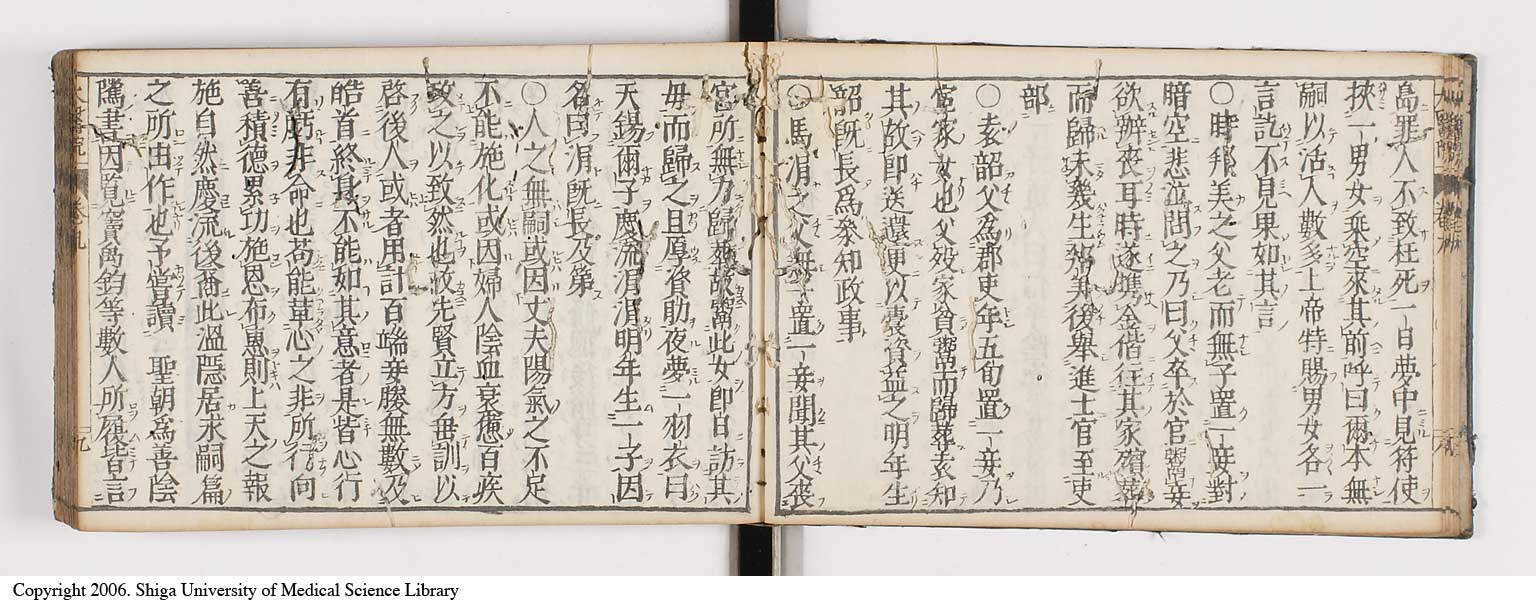 島罪人不致枉死一日夢中見符使
挾一男女乗空來其前呼曰爾本無
嗣以活人數多上帝特賜男女各一
言訖不見果如其言
○時邦美之父老而無子置一妾對
暗空悲泣問之乃曰父卒於官鬻妾
欲辦喪耳時遂携金偕往其家殯葬
而歸未幾生邦美後舉進士官至吏
部
○袁韶父爲郡吏年五旬置一妾乃
宦家女也父歿家貧鬻而歸葬袁知
其故即送還更以囊資益之明年生
韶既長爲參知政事
○馬涓之父無子置一妾聞其父喪
官所無力歸葬故鬻此女即日訪其
母而歸之且厚資助夜夢一羽衣曰
天錫爾子慶流涓涓明年生一子因
名曰涓既長及第
○人之無嗣或因丈夫陽氣之不足
不能施化或因婦人陰血衰憊百疾
攻之以致然也故先賢立方垂訓以
啓後人或者用計百端妾媵無數及
皓首終身不能如其意者是皆心行
有虧非命也苟能革心之非所行向
善積德累功施恩布惠則上天之報
施自然慶流後裔此溫隱居求嗣篇
之所由作也予嘗讀 聖朝爲善陰
隲書因覧竇禹鈞等數人所履皆言
九
Copyright 2006. Shiga University of Medical Science Library